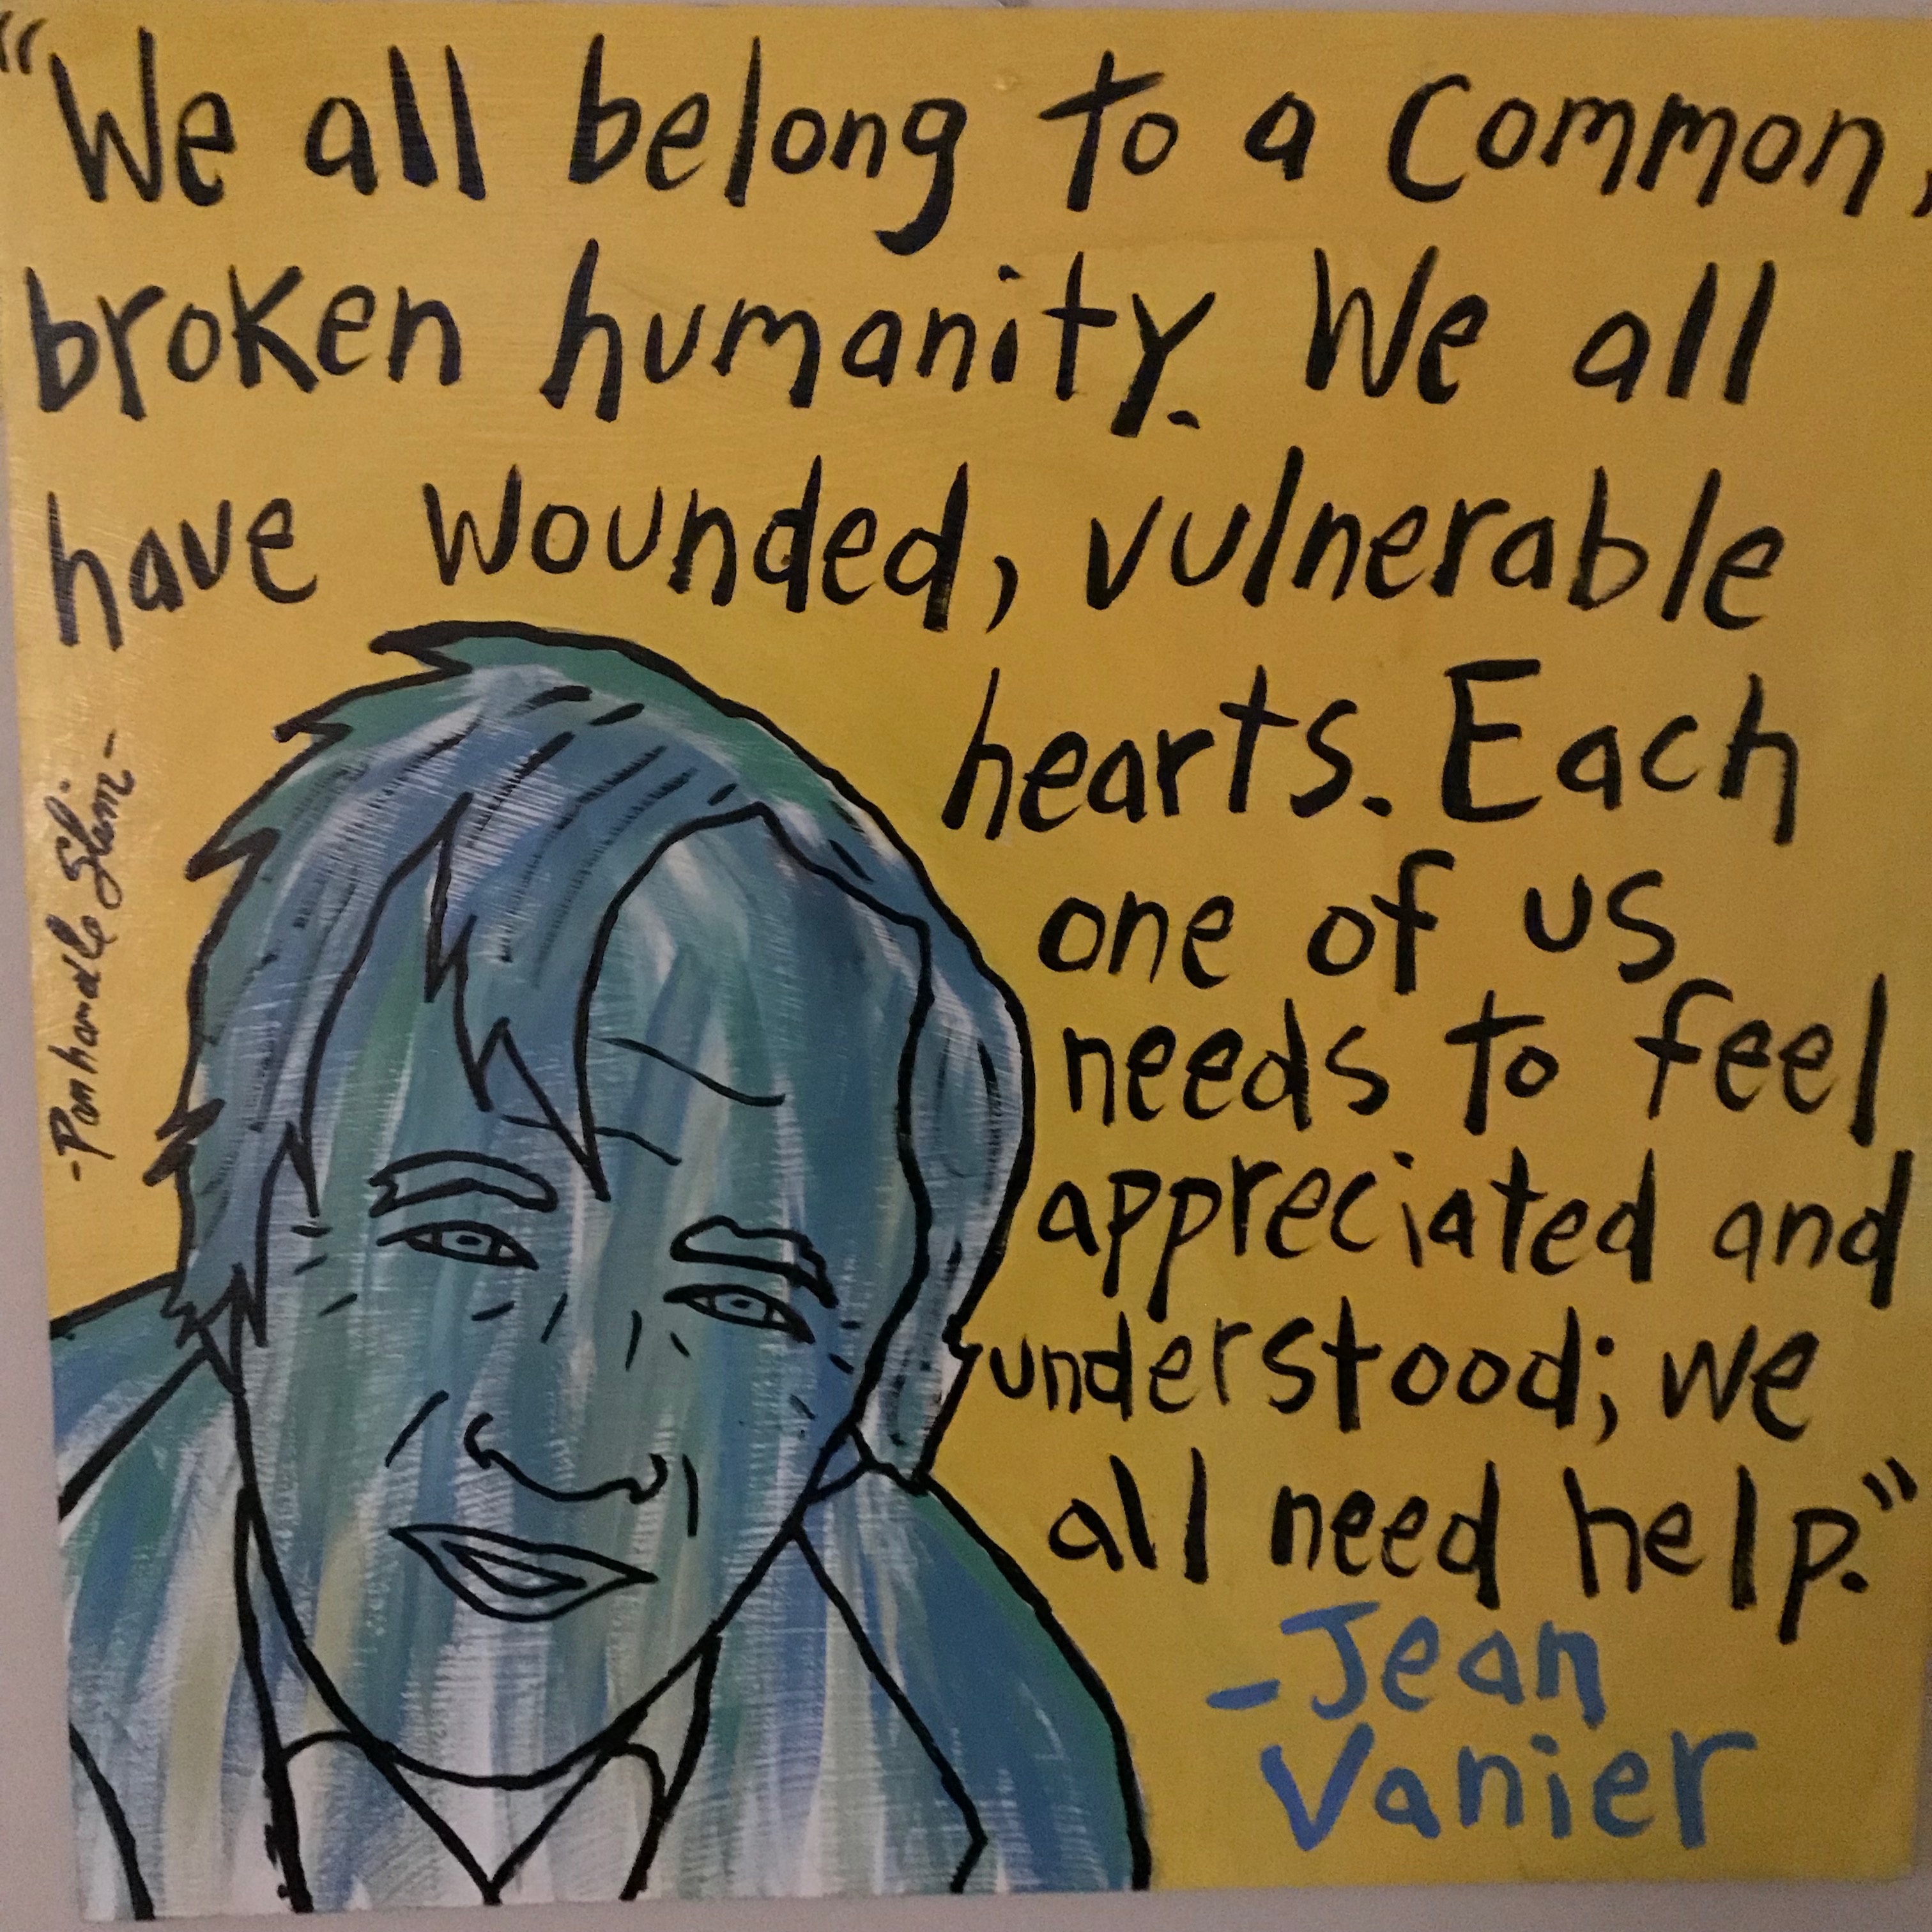 "We all belong to a Common,
broken humanity. We all
have wounded, vulnerable
hearts. Each
one of us
needs to feel
appreciated and
understood; we
all need help."
-Jean
Vanier
-Panhandle Slim-